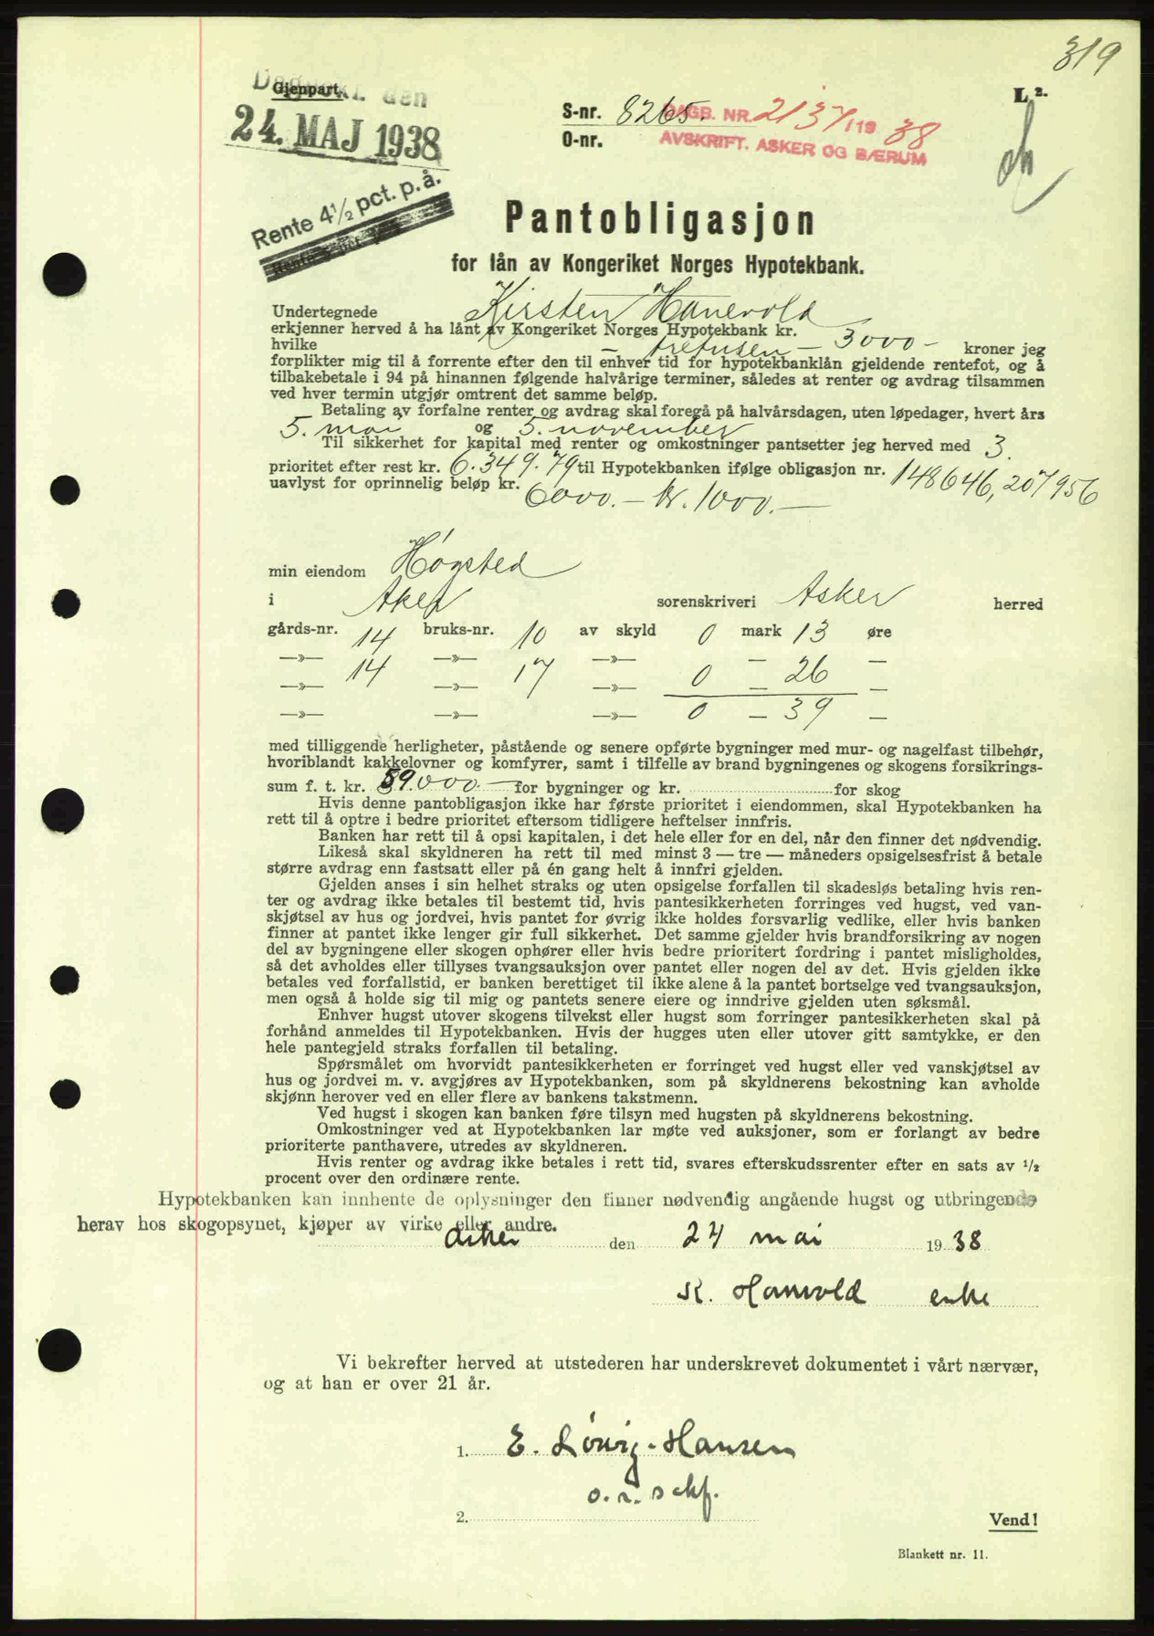 319
Dagbokf. den
Gjenpart.
24. MAJ 1938
L 2.
S-nr. 8265.
DAGB. NR. 2137/1938
O-nr.
AVSKRIFT. ASKER OG BÆRUM
Rente 4½ pct. p. å.
Pantobligasjon
for lån av Kongeriket Norges Hypotekbank.
Undertegnede Kirsten Hanevold
erkjenner herved å ha lånt av Kongeriket Norges Hypotekbank kr. 3000 -
hvilke - tretusen - kroner jeg
forplikter mig til å forrente efter den til enhver tid for hypotekbanklån gjeldende rentefot, og å
tilbakebetale i 94 på hinannen følgende halvårige terminer, således at renter og avdrag tilsammen
ved hver termin utgjør omtrent det samme beløp.
Betaling av forfalne renter og avdrag skal foregå på halvårsdagen, uten løpedager, hvert års
5. mai og 5. november
Til sikkerhet for kapital med renter og omkostninger pantsetter jeg herved med 3.
prioritet efter rest kr. 6.349.79 til Hypotekbanken ifølge obligasjon nr. 148646, 207956
uavlyst for oprinnelig beløp kr. 6000.- kr. 1000.-
min eiendom Høgsted
i Aker sorenskriveri Asker herred
gårds-nr. 14 bruks-nr. 10 av skyld 0 mark 13 øre
—»— 14 —»— 17 —»— 0 — 26 —
—»— —»— —»—
—»— —»— —»— 0 — 39 —
med tilliggende herligheter, påstående og senere opførte bygninger med mur- og nagelfast tilbehør,
hvoriblandt kakkelovner og komfyrer, samt i tilfelle av brand bygningenes og skogens forsikrings-
sum f. t. kr. 59.000.- for bygninger og kr. for skog
Hvis denne pantobligasjon ikke har første prioritet i eiendommen, skal Hypotekbanken ha
rett til å optre i bedre prioritet eftersom tidligere heftelser innfris.
Banken har rett til å opsi kapitalen, i det hele eller for en del, når den finner det nødvendig.
Likeså skal skyldneren ha rett til med minst 3 — tre — måneders opsigelsesfrist å betale
større avdrag enn fastsatt eller på én gang helt å innfri gjelden.
Gjelden anses i sin helhet straks og uten opsigelse forfallen til skadesløs betaling hvis ren-
ter og avdrag ikke betales til bestemt tid, hvis pantesikkerheten forringes ved hugst, ved van-
skjøtsel av hus og jordvei, hvis pantet for øvrig ikke holdes forsvarlig vedlike, eller hvis banken
finner at pantet ikke lenger gir full sikkerhet. Det samme gjelder hvis brandforsikring av nogen
del av bygningene eller skogen ophører eller hvis bedre prioritert fordring i pantet misligholdes,
så det avholdes eller tillyses tvangsauksjon over pantet eller nogen del av det. Hvis gjelden ikke
betales ved forfallstid, er banken berettiget til ikke alene å la pantet bortselge ved tvangsauksjon,
men også å holde sig til mig og pantets senere eiere og inndrive gjelden uten søksmål.
Enhver hugst utover skogens tilvekst eller hugst som forringer pantesikkerheten skal på
forhånd anmeldes til Hypotekbanken. Hvis der hugges uten eller utover gitt samtykke, er den
hele pantegjeld straks forfallen til betaling.
Spørsmålet om hvorvidt pantesikkerheten er forringet ved hugst eller ved vanskjøtsel av
hus og jordvei m. v. avgjøres av Hypotekbanken, som på skyldnerens bekostning kan avholde
skjønn herover ved en eller flere av bankens takstmenn.
Ved hugst i skogen kan banken føre tilsyn med hugsten på skyldnerens bekostning.
Omkostninger ved at Hypotekbanken lar møte ved auksjoner, som er forlangt av bedre
prioriterte panthavere, utredes av skyldneren.
Hvis renter og avdrag ikke betales i rett tid, svares efterskudssrenter efter en sats av 1/2
procent over den ordinære rente.
Hypotekbanken kan innhente de oplysninger den finner nødvendig angående hugst og utbringende
herav hos skogopsynet, kjøper av virke eller andre.
Asker den 24 mai 1938
K. Hanevold enke
Vi bekrefter herved at utstederen har underskrevet dokumentet i vårt nærvær,
og at han er over 21 år.
1. E. Lövig-Hansen
o.r.sakf.
2.
Vend!
Blankett nr. 11.